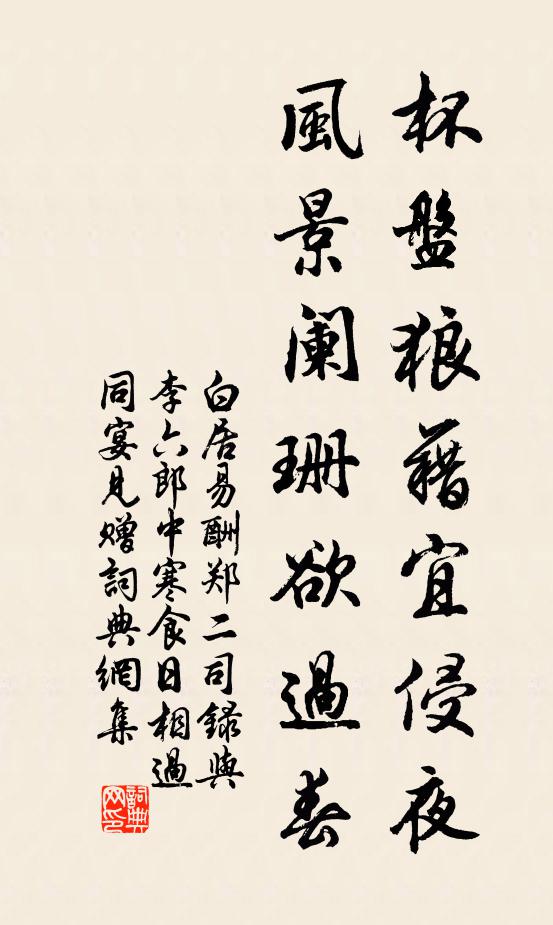 杯盤狼藉宜侵夜
風景阑珊欲過春
白居易酬郑二司録與
李六郎中寒食日相過
同宴見赠詞典網集
詞典网印